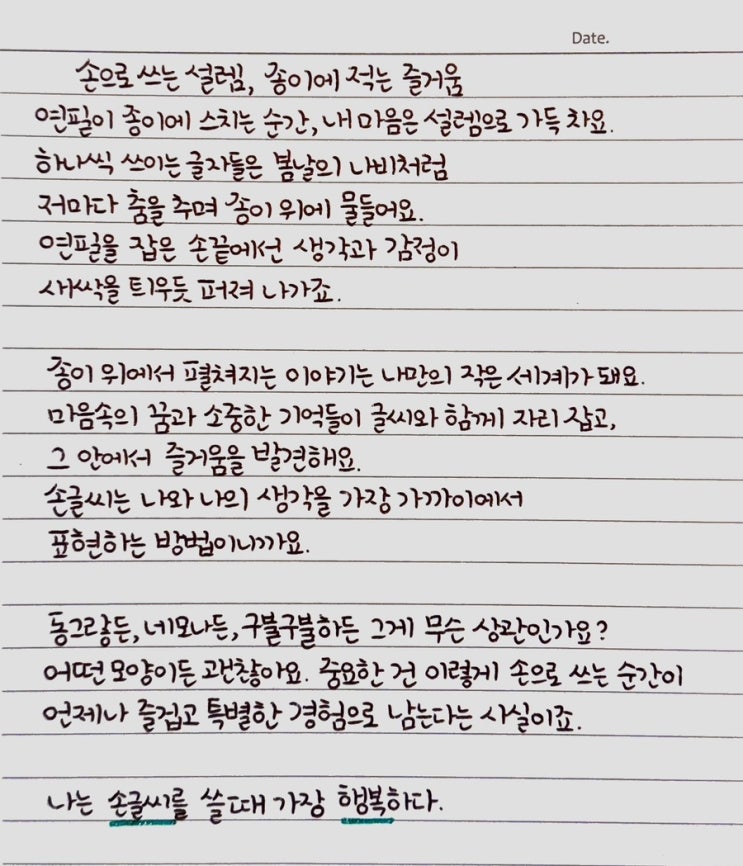 Date.
손으로 쓰는 설렘, 종이에 적는 즐거움
연필이 종이에 스치는 순간, 내 마음은 설렘으로 가득 차요.
하나씩 쓰이는 글자들은 봄날의 나비처럼
저마다 춤을 추며 종이 위에 물들어요.
연필을 잡은 손끝에선 생각과 감정이
새싹을 틔우듯 퍼져 나가죠.
종이 위에서 펼쳐지는 이야기는 나만의 작은 세계가 돼요.
마음속의 꿈과 소중한 기억들이 글씨와 함께 자리 잡고,
그 안에서 즐거움을 발견해요.
손글씨는 나와 나의 생각을 가장 가까이에서
표현하는 방법이니까요.
동그랗든, 네모나든, 구불구불하든 그게 무슨 상관인가요?
어떤 모양이든 괜찮아요. 중요한 건 이렇게 손으로 쓰는 순간이
언제나 즐겁고 특별한 경험으로 남는다는 사실이죠.
나는 손글씨를 쓸 때 가장 행복하다.